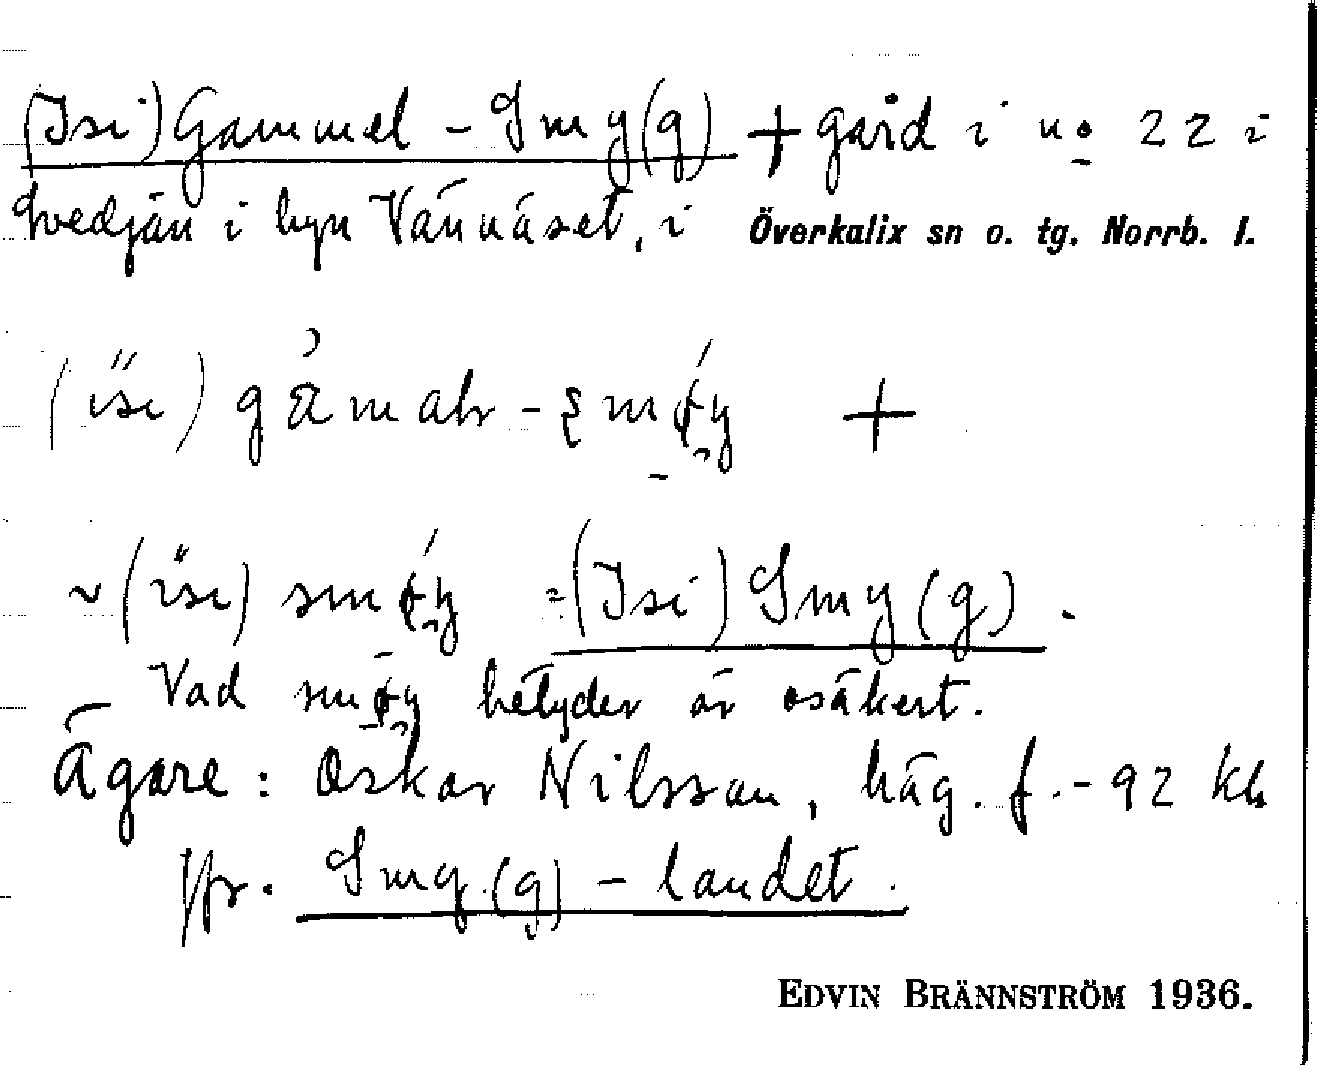 (Isi) Gammel - Smy(g) + gård i no 22 i
Svedjan i byn Vännäset, i Överkalix sn o. tg. Norrb. l.
(isi) gamah - smøy +
~ (isi) smøy = (Isi) Smy(g).
Vad smøy betyder är osäkert.
Ägare: Oskar Nilsson, häg. f. -92 Kh
Jfr. Smy(g) - landet.
EDVIN BRÄNNSTRÖM 1936.